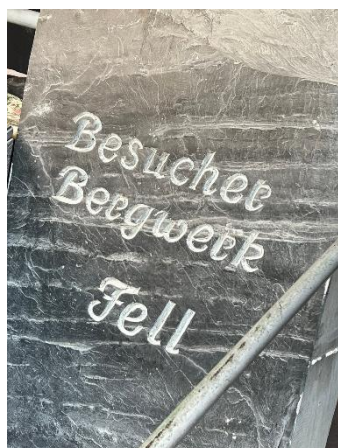 Besucher
Bergwerk
Fell